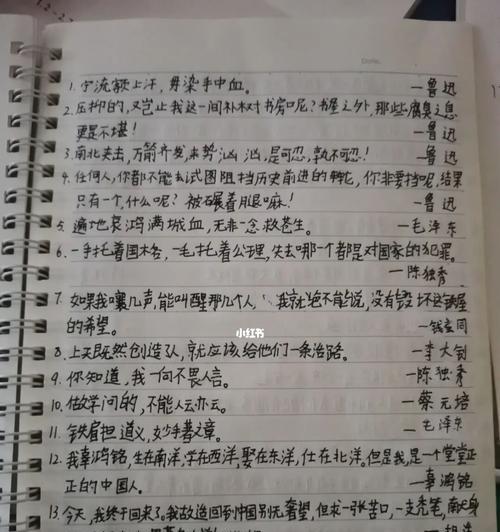 Date.
1. 宁流额上汗，毋染手中血。 —鲁迅
2. 压抑的，又岂止我这一间补树书房呢？书屋之外，那些腐臭之息
更是不堪！ —鲁迅
3. 南北夹击，万箭齐发，来势汹汹，是可忍，孰不可忍！ —鲁迅
4. 任何人，你都不能去试图阻挡历史前进的车轮，你非要挡呢，结果
只有一个，什么呢？被碾着腿嘛！ —鲁迅
5. 遍地哀鸿满城血，无非一念救苍生。 —毛泽东
6. 一手托着国格，一手托着公理，失去哪一个都是对国家的犯罪。
—陈独秀
7. 如果我嚷几声，能叫醒那几个人，我就绝不能说，没有毁坏这铁屋
的希望。 —钱玄同
小红书
8. 上天既然创造了人，就应该给他们一条活路。 —李大钊
9. 你知道，我一向不畏人言。 —陈独秀
10. 做学问的，不能人云亦云。 —蔡元培
11. 铁肩担道义，妙手著文章。 —毛泽东
12. 我辜鸿铭，生在南洋，学在西洋，娶在东洋，仕在北洋。但是我，是一个堂堂正
正的中国人。 —辜鸿铭
13. 今天，我终于回来了。我故返回中国别无奢望，但求一张苦口，一支秃笔，